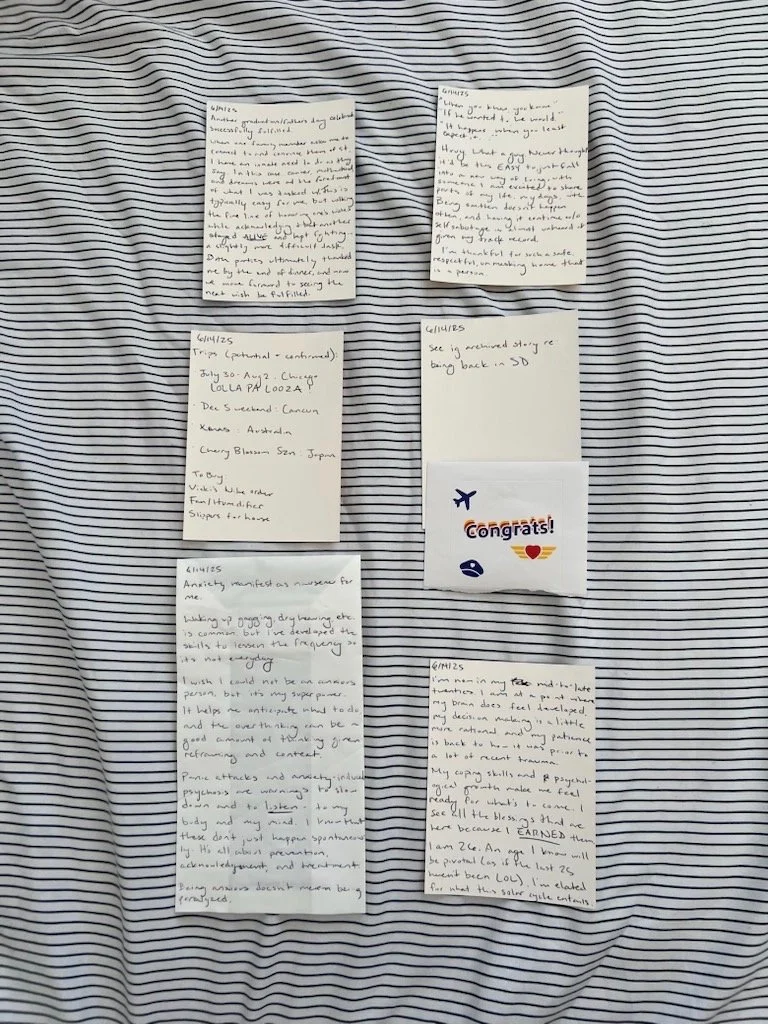 6/14/25
Another graduation/fathers day celebration
successfully fulfilled.
When one family member asks me to
connect to and convince them of it
I have an innate need to do as they
say. In this case career, motherhood,
and dreams were at the forefront
of what I was tasked w/. This is
typically easy for me, but walking
the fine line of honoring one's wishes
while acknowledging that another
stayed ALIVE and kept fighting -
a slightly more difficult task.
Both parties ultimately thanked
me by the end of dinner, and now
we move forward to seeing the
next wish be fulfilled.
6/14/25
"When you know you know"
"If he wanted to he would"
"It happens when you least
expect it"
What a guy. Never thought
it'd be this EASY to just fall
into a new way of living, with
someone I am excited to share
parts of my life, my days, with.
Being smitten doesn't happen
often, and having it continue w/o
self sabotage is almost unheard of
given my track record.
I'm thankful for such a safe,
respectful, unmasking home that
is a person.
6/14/25
Trips (potential + confirmed):
July 30 - Aug 2 : Chicago
LOLLAPALOOZA!
· Dec 5 weekend : Cancun
· Xmas : Australia
· Cherry Blossom Szn : Japan
To Buy:
Vicki's Nike order
Fan/Humidifier
Slippers for house
6/14/25
See ig archived story re:
being back in SD
Congrats!
6/14/25
Anxiety manifest as nausea for
me.
Waking up gagging, dry heaving, etc.
is common but I've developed the
skills to lessen the frequency so
it's not everyday
I wish I could not be an anxious
person, but it's my superpower.
It helps me anticipate what to do
and the overthinking can be a
good amount of thinking given
reframing and context.
Panic attacks and anxiety-induced
psychosis are warnings to slow
down and to listen - to my
body and my mind. I know that
these don't just happen spontaneous
ly. It's all about prevention,
acknowledgement, and treatment.
Being anxious doesn't mean being
paralyzed.
6/14/25
I'm now in my mid-to-late
twenties. I am at a point where
my brain does feel developed,
my decision making is a little
more rational and my patience
is back to how it was prior to
a lot of recent trauma.
My coping skills and psychol-
ogical growth make me feel
ready for what's to come. I
see all the blessings that are
here because I EARNED them
I am 26. An age I know will
be pivotal (as if the last 25
weren't been LOL). I'm elated
for what this solar cycle entails.